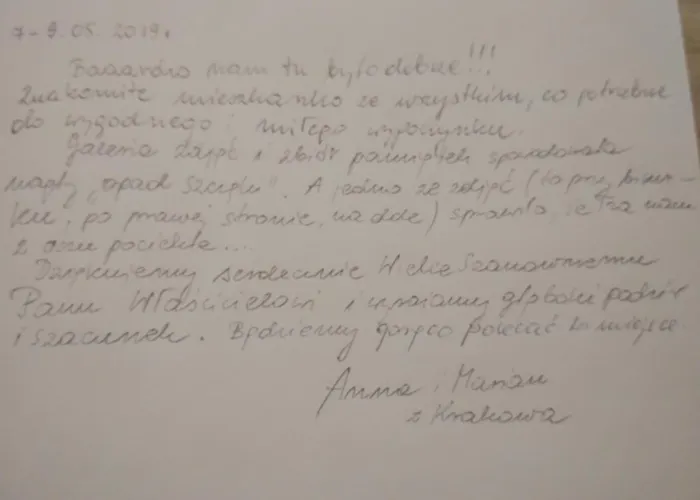 7-9.05.2019r
Baaardzo nam tu było dobrze!!!
Znakomite mieszkanko ze wszystkim, co potrzebne
do wygodnego i miłego wypoczynku.
Galeria zdjęć i zbiór pamiątek spowodowała
nagły "opad szczęki". A jedno ze zdjęć (to przy
, po prawej stronie, na dole) sprawiło, że łza nam
z oczu pociekła....
Dziękujemy serdecznie Wielce Szanownemu
Panu Właścicielowi i wyrażamy głęboki podziw
i szacunek. Będziemy gorąco polecać to miejsce
Anna i Marian
z Krakowa